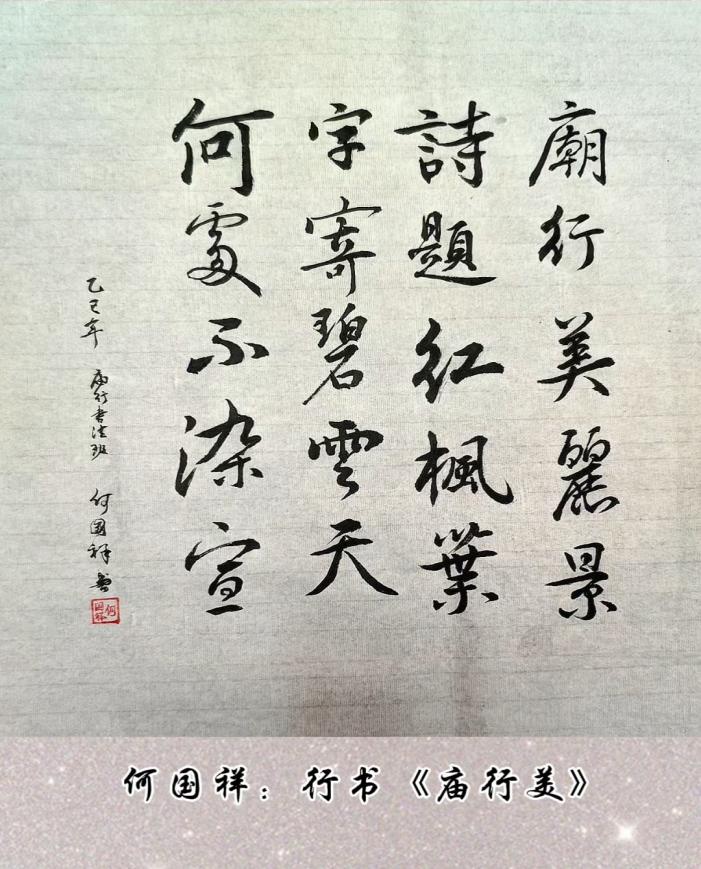 廟行美麗景
詩題紅楓葉
字寄碧雲天
何處不染宣
乙巳年 廟行書法班 何國祥書
何國祥
何国祥：行书《庙行美》